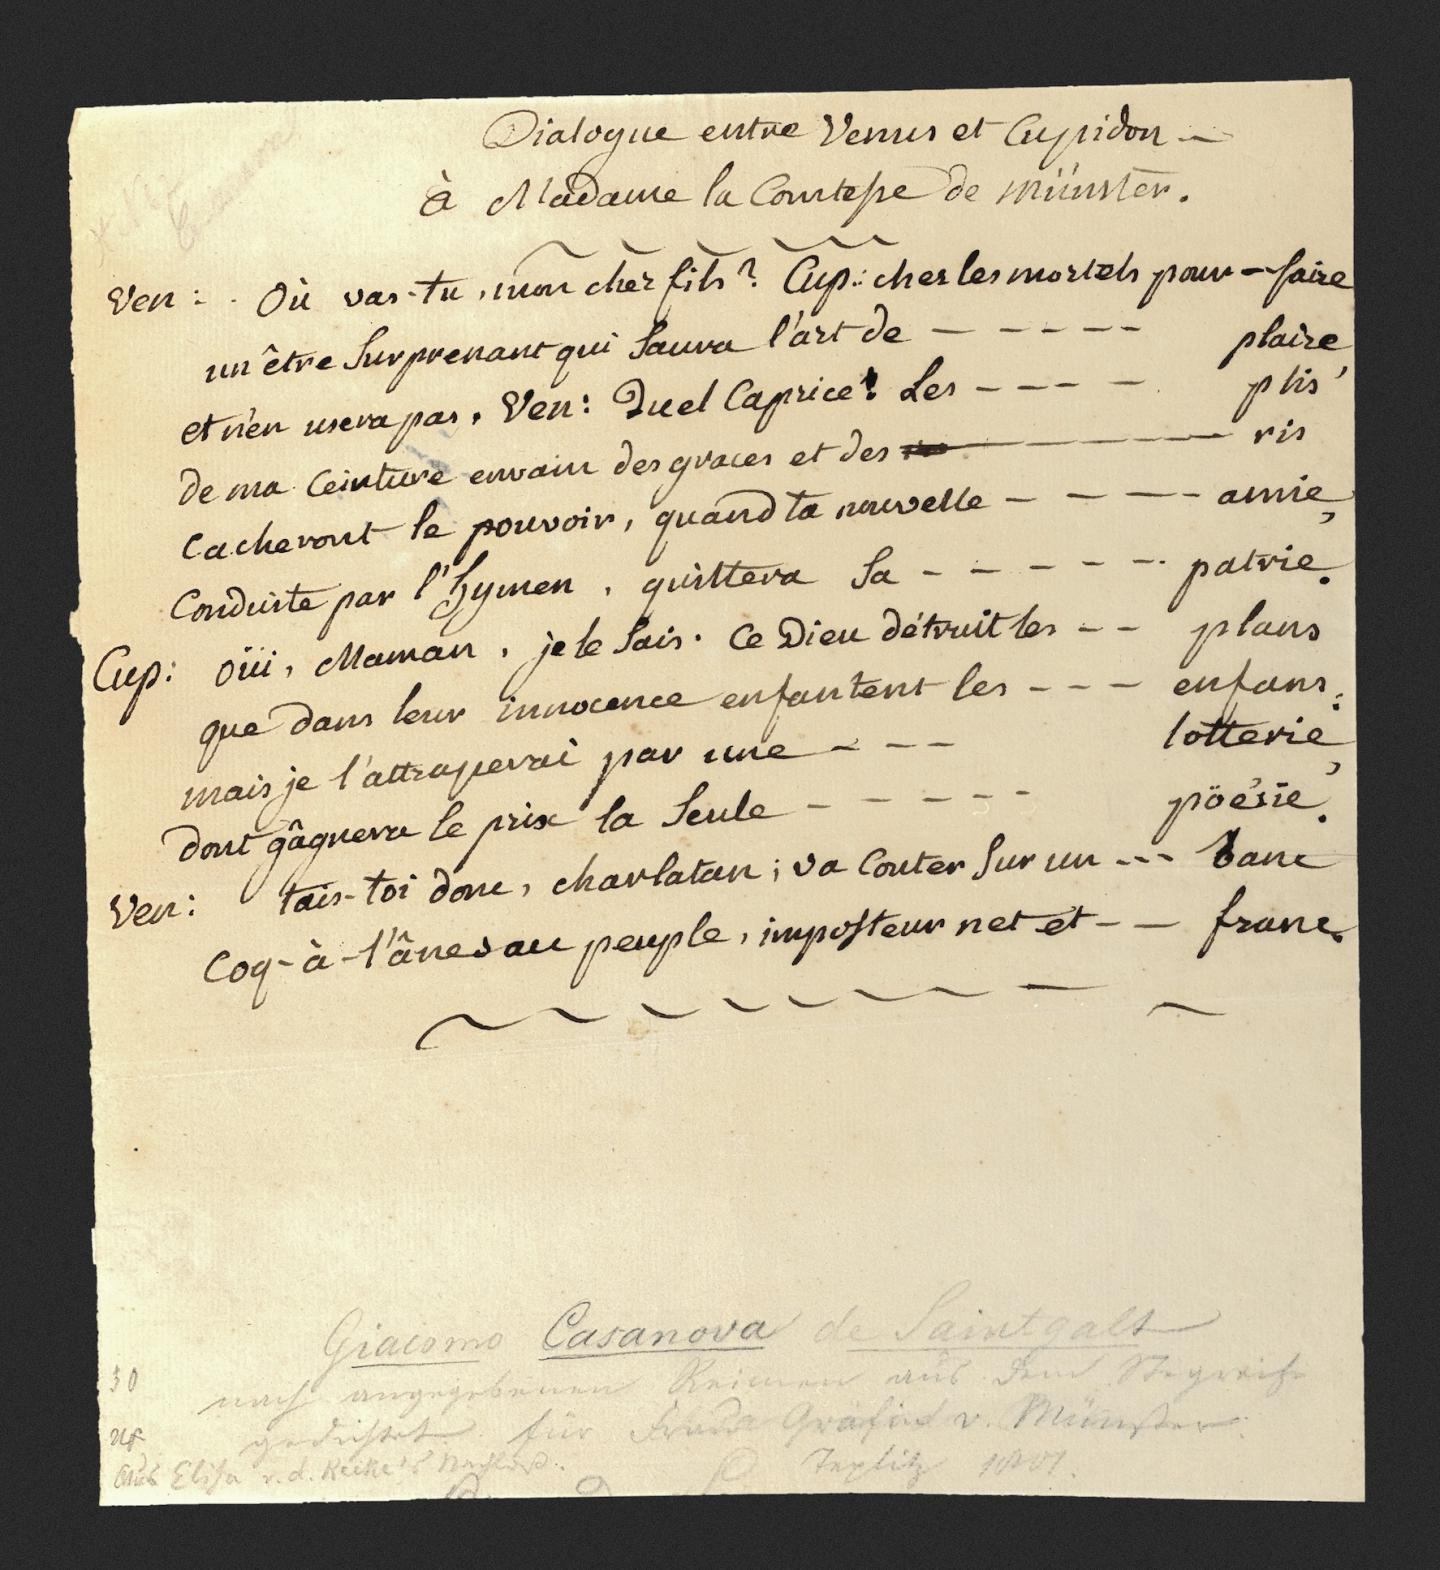 Dialogue entre Venus et Cupidon —
à Madame la Comtesse de Münster.
Ven: Où vas-tu, mon cher fils? Cup: chez les mortels pour — faire
un être surprenant qui saura l'art de — — — — — plaire
et n'en usera pas. Ven: Quel Caprice! Les — — — — plis
de ma Ceinture envain des graces et des — — — — ris
Cacheront le pouvoir, quand ta nouvelle — — — — amie,
Conduite par l'hymen, quittera sa — — — — — patrie.
Cup: Oüi, Maman, je le sais. Ce Dieu détruit les — — plans
que dans leur innocence enfantent les — — — enfans;
mais je l'attraperai par une — — — lotterie,
dont gâgnera le prix la seule — — — — — pöésie.
Ven: tais-toi donc, charlatan; va conter sur un --- banc
Coq-à-l'ânes au peuple, imposteur net et — — franc.
Giacomo Casanova de Saintgalt
nach angegebenen Reimen aus dem Stegreife
gedichtet für Frau Gräfin v. Münster.
Aus Elisa v. d. Recke's Nachlaß. Teplitz
30